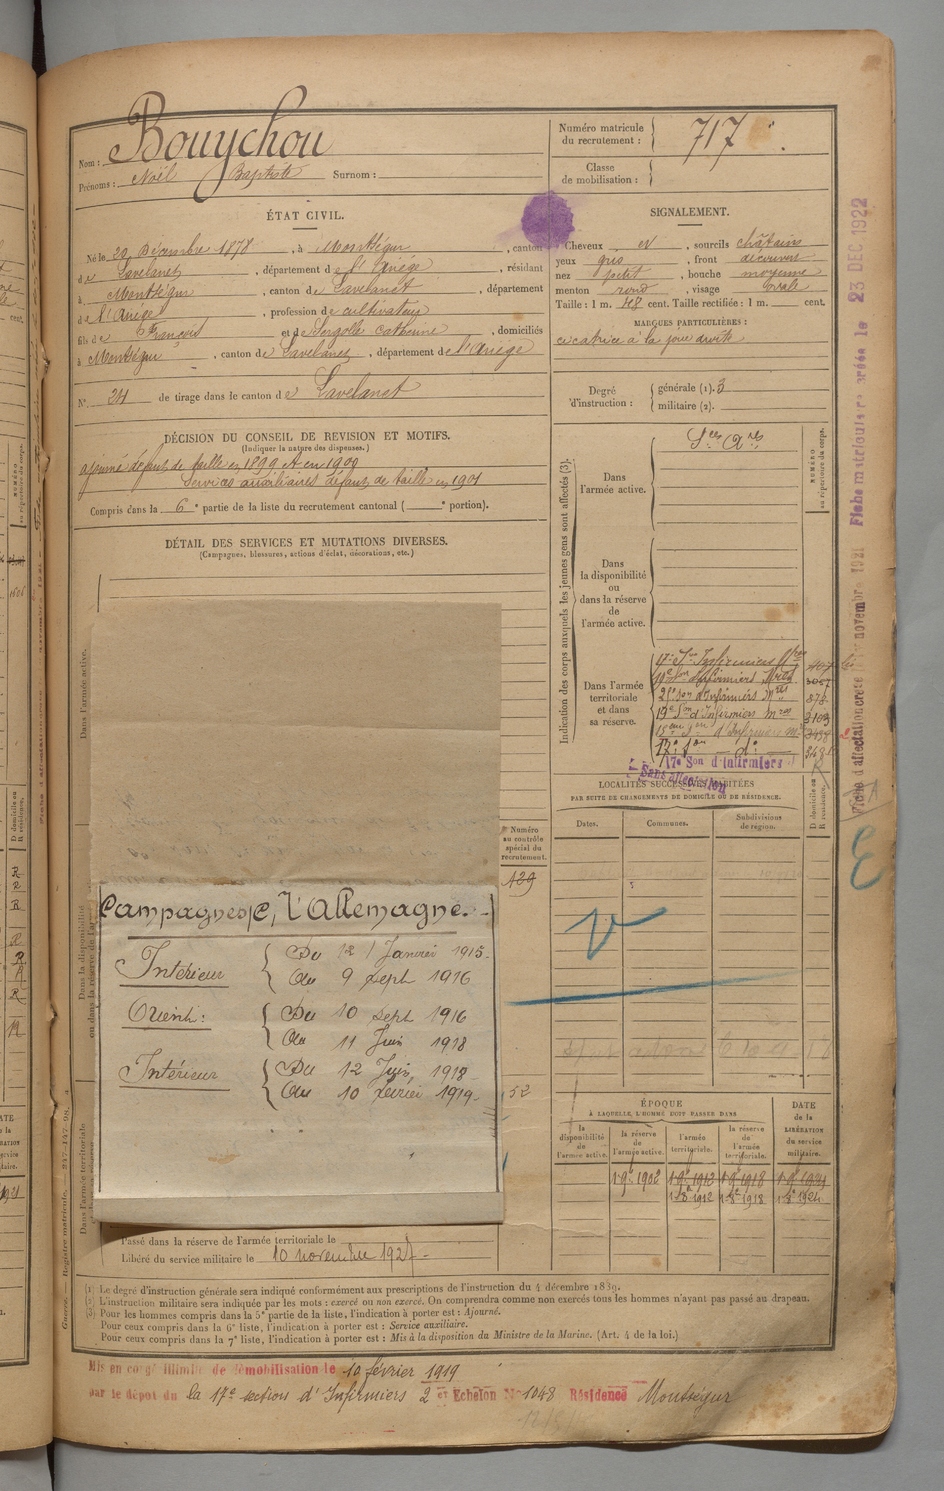 Nom : Bouychou
Prénoms : Noël Baptiste Surnom :
Numéro matricule du recrutement : 717
Classe de mobilisation :
ÉTAT CIVIL.
Né le 20 Décembre 1878, à Montségur, canton
de Lavelanet, département de l'Ariège, résidant
à Montségur, canton de Lavelanet, département
de l'Ariège, profession de cultivateur
fils de François et de Sergolle Catherine, domiciliés
à Montségur, canton de Lavelanet, département de l'Ariège
N° 24 de tirage dans le canton de Lavelanet
SIGNALEMENT.
Cheveux et, sourcils châtains
yeux gris, front découvert
nez petit, bouche moyenne
menton rond, visage ovale
Taille : 1 m. 48 cent. Taille rectifiée : 1 m. cent.
MARQUES PARTICULIÈRES :
cicatrice à la joue droite
Degré d'instruction :
générale (1). 3
militaire (2).
DÉCISION DU CONSEIL DE REVISION ET MOTIFS.
(Indiquer la nature des dispenses.)
ajourné défaut de taille en 1899 et en 1900
Services auxiliaires défaut de taille en 1901
Compris dans la 6e partie de la liste du recrutement cantonal ( e portion).
DÉTAIL DES SERVICES ET MUTATIONS DIVERSES.
(Campagnes, blessures, actions d'éclat, décorations, etc.)
Dans l'armée active.
Dans la disponibilité ou dans la réserve de l'armée active.
Dans l'armée territoriale
Indication des corps auxquels les jeunes gens sont affectés (3).
NUMÉRO au répertoire du corps.
Dans l'armée active.
Dans la disponibilité ou dans la réserve de l'armée active.
Dans l'armée territoriale et dans sa réserve.
17e Son Infirmiers
d'Infirmiers
d'Infirmiers
878
19e Son d'Infirmiers
3109
15eme d'Infirmiers
17e Son do
17e Son d'Infirmiers
Sans affectation
LOCALITÉS SUCCESSIVES HABITÉES
PAR SUITE DE CHANGEMENTS DE DOMICILE OU DE RÉSIDENCE.
Dates. Communes. Subdivisions de région.
D domicile ou R résidence.
Numéro au contrôle spécial du recrutement.
129
52
Campagnes c, l'Allemagne.
Intérieur { Du 12 Janvier 1915
Au 9 Sept 1916
Orient : { Du 10 Sept 1916
Au 11 Juin 1918
Intérieur { Du 12 Juin 1918
Au 10 février 1919
ÉPOQUE
À LAQUELLE L'HOMME DOIT PASSER DANS
la disponibilité de l'armée active.
la réserve de l'armée active.
l'armée territoriale.
la réserve de l'armée territoriale.
DATE de la LIBÉRATION du service militaire.
1.9e 1902 1.9e 1912 1.9e 1918
1.8e 1912 1.8e 1918 1.8e 1924
Passé dans la réserve de l'armée territoriale le
Libéré du service militaire le 10 novembre 1927
(1) Le degré d'instruction générale sera indiqué conformément aux prescriptions de l'instruction du 4 décembre 1889.
(2) L'instruction militaire sera indiquée par les mots : exercé ou non exercé. On comprendra comme non exercés tous les hommes n'ayant pas passé au drapeau.
(3) Pour les hommes compris dans la 5e partie de la liste, l'indication à porter est : Ajourné.
Pour ceux compris dans la 6e liste, l'indication à porter est : Service auxiliaire.
Pour ceux compris dans la 7e liste, l'indication à porter est : Mis à la disposition du Ministre de la Marine. (Art. 4 de la loi.)
Mis en congé illimité de démobilisation le 10 février 1919
par le dépôt du la 17e section d'Infirmiers 2e Echelon N° 1048 Résidence Montségur
novembre 1921 Fiche matriculaire créée le 23 DEC 1922